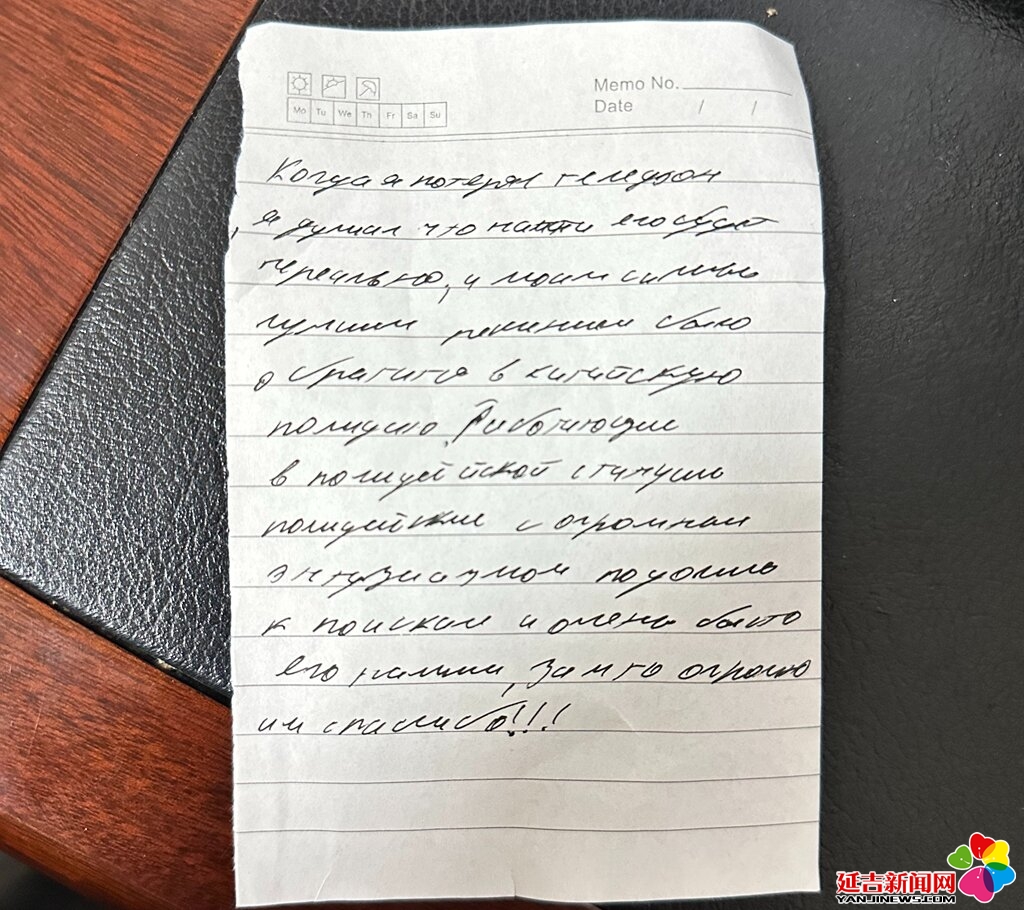 Memo No.
Mo Tu We Th Fr Sa Su
Date / /
Когда я потерял телефон
я думал что найти его будет
нереально, и моим самым
лучшим решением было
обратится в китайскую
полицию. Работающие
в полицейской станции
полицейские с огромным
энтузиазмом подошли
к поискам и очень быстро
его нашли, за что огромное
им спасибо!!!
延吉新闻网
YANJINEWS.COM